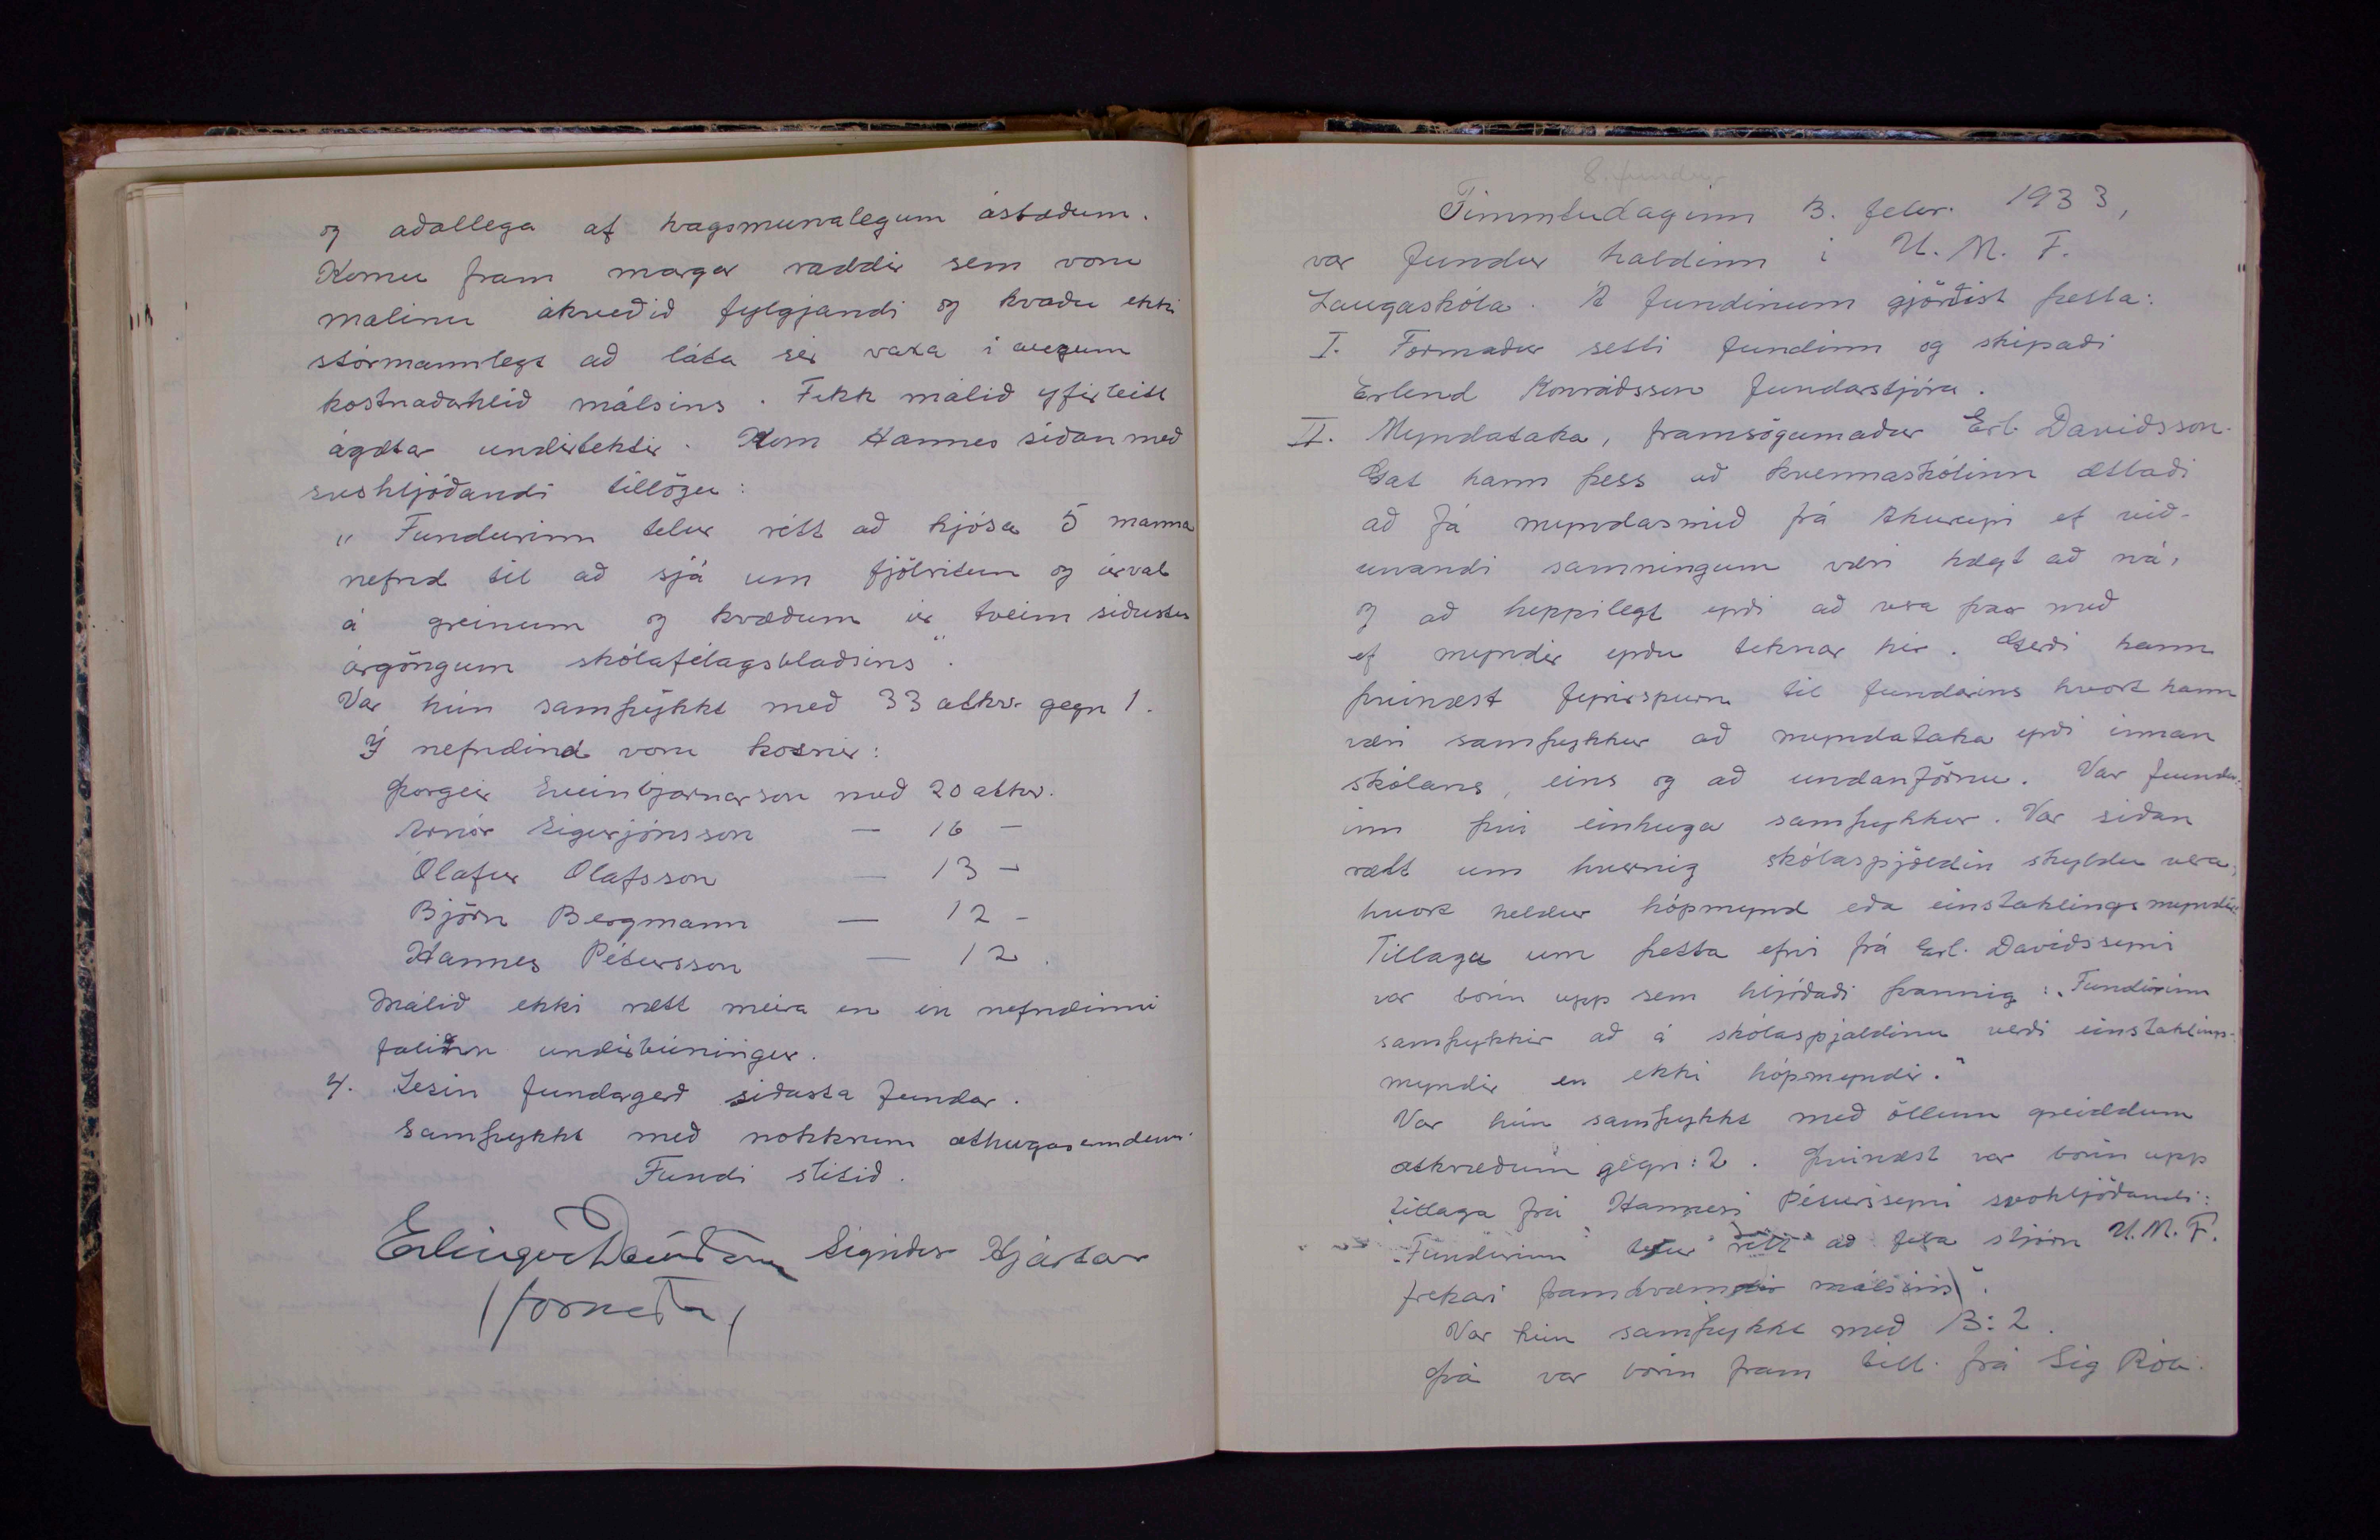 og aðallega af hagsmunalegum ástæðum.
Komu fram margar raddir sem voru
málinu ákveðið fylgjandi og kváðu ekki
stórmannlegt að láta sér vaxa í augum
kostnaðarhlið málsins. Fékk málið yfirleitt
ágætar undirtektir. Kom Hannes síðan með
svohljóðandi tillögu:
„Fundurinn telur rétt að kjósa 5 manna
nefnd til að sjá um fjölritun og úrval
á greinum og kvæðum úr tveim síðustu
árgöngum skólafélagsblaðsins“.
Var hún samþykkt með 33 atkv. gegn 1.
Í nefndina voru kosnir:
Þorgeir Sveinbjarnarson með 20 atkv.
Arnór Sigurjónsson — 16 —
Ólafur Ólafsson — 13 —
Björn Bergmann — 12 —
Hannes Pétursson — 12.
Málið ekki rætt meira en en nefndinni
falinn undirbúningur.
4. Lesin fundagerð síðasta fundar.
Samþykkt með nokkrum athugasemdum.
Fundi slitið.
Erlingur Davíðsson Sigríður Hjartar
(form.)
8. fundur
Fimmtudaginn 3. febr. 1933,
var fundur haldinn í U.M.F.
Laugaskóla. Á fundinum gjörðist þetta:
I. Formaður setti fundinn og skipaði
Erlend Konráðsson fundarstjóra.
II. Myndataka, framsögumaður Erl. Davíðsson.
Gat hann þess að kvennaskólinn ætlaði
að fá myndasmið frá Akureyri ef við-
unandi samningum væri hægt að ná,
og að heppilegt yrði að vera þar með
ef myndir yrðu teknar hér. Gerði hann
þvínæst fyrirspurn til fundarins hvort hann
væri samþykkur að myndataka yrði innan
skólans, eins og að undanförnu. Var fundur-
inn því einhuga samþykkur. Var síðan
rætt um hvernig skólaspjöldin skyldu vera,
hvort heldur hópmynd eða einstaklingsmyndir.
Tillaga um þetta efni frá Erl. Davíðssyni
var borin upp sem hljóðaði þannig: „Fundurinn
samþykkir að á skólaspjaldinu verði einstaklings-
myndir en ekki hópmyndir.“
Var hún samþykkt með öllum greiddum
atkvæðum gegn: 2. Þvínæst var borin upp
tillaga frá Hannesi Péturssyni svohljóðandi:
„Fundurinn telur rétt að fela stjórn U.M.F.
frekari framkvæmdir málsins“.
Var hún samþykkt með 13:2.
Þá var borin fram till. frá Sig Rób.